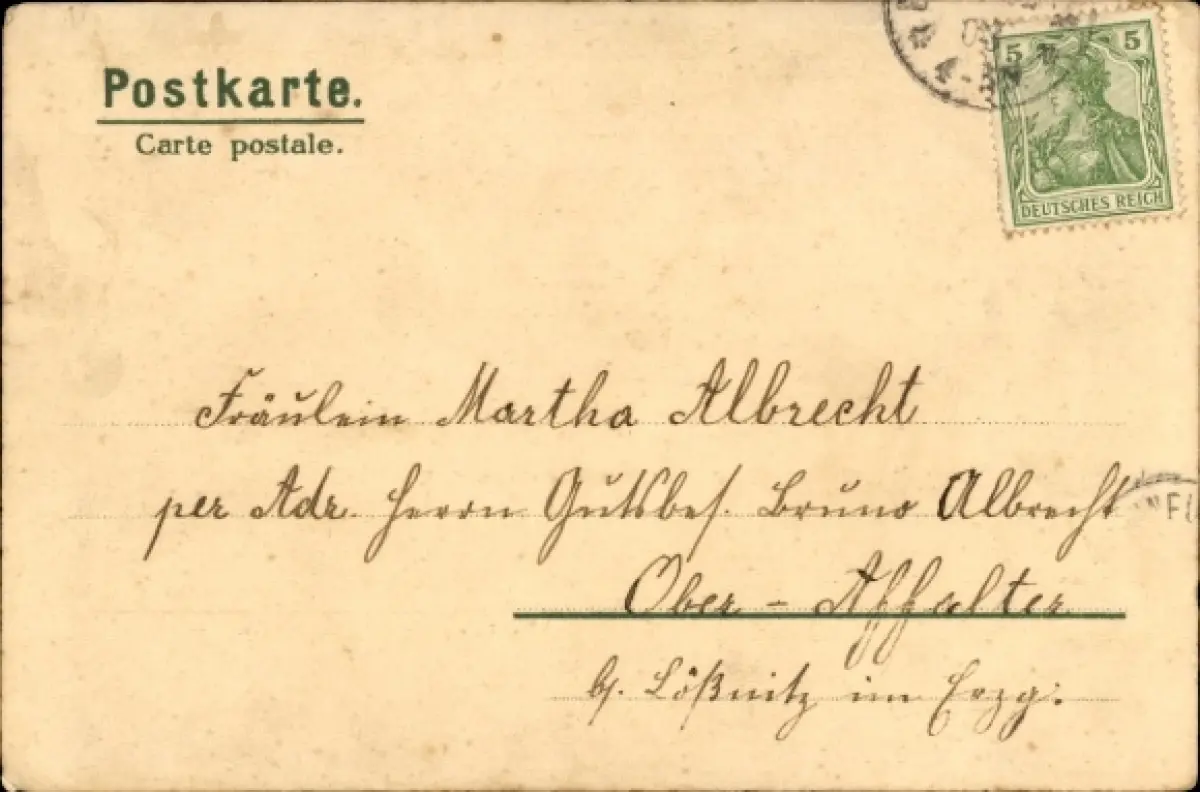 Postkarte.
Carte postale.
5 5
DEUTSCHES REICH
Fräulein Martha Albrecht
per Adr. Herrn Gutsbes. Bruno Albrecht
Ober - Affalter
b/. Lößnitz im Erzg.